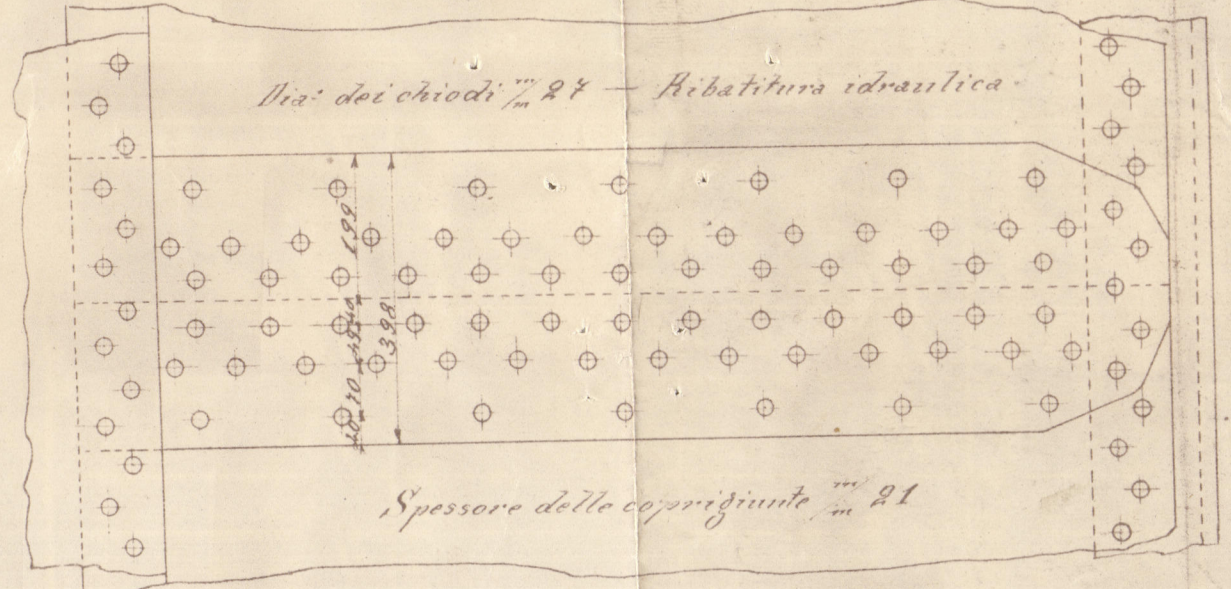 Dia: dei chiodi m/m 27 — Ribatitura idraulica
199
398
Spessore delle coprigiunte m/m 21